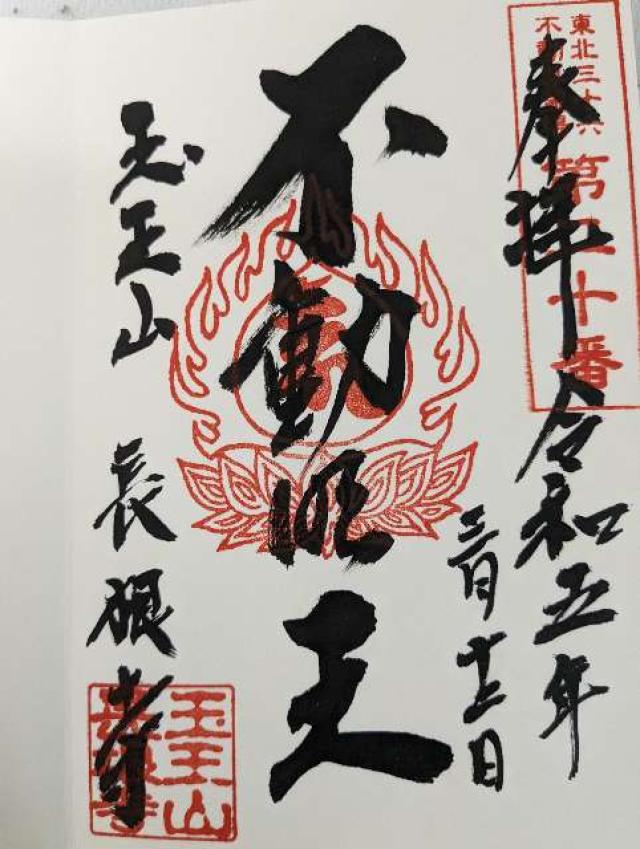 東北三十六
不動尊霊場
第二十番
奉拝 令和五年
三月十二日
不動明王
玉王山 長根寺
玉王山
長根寺